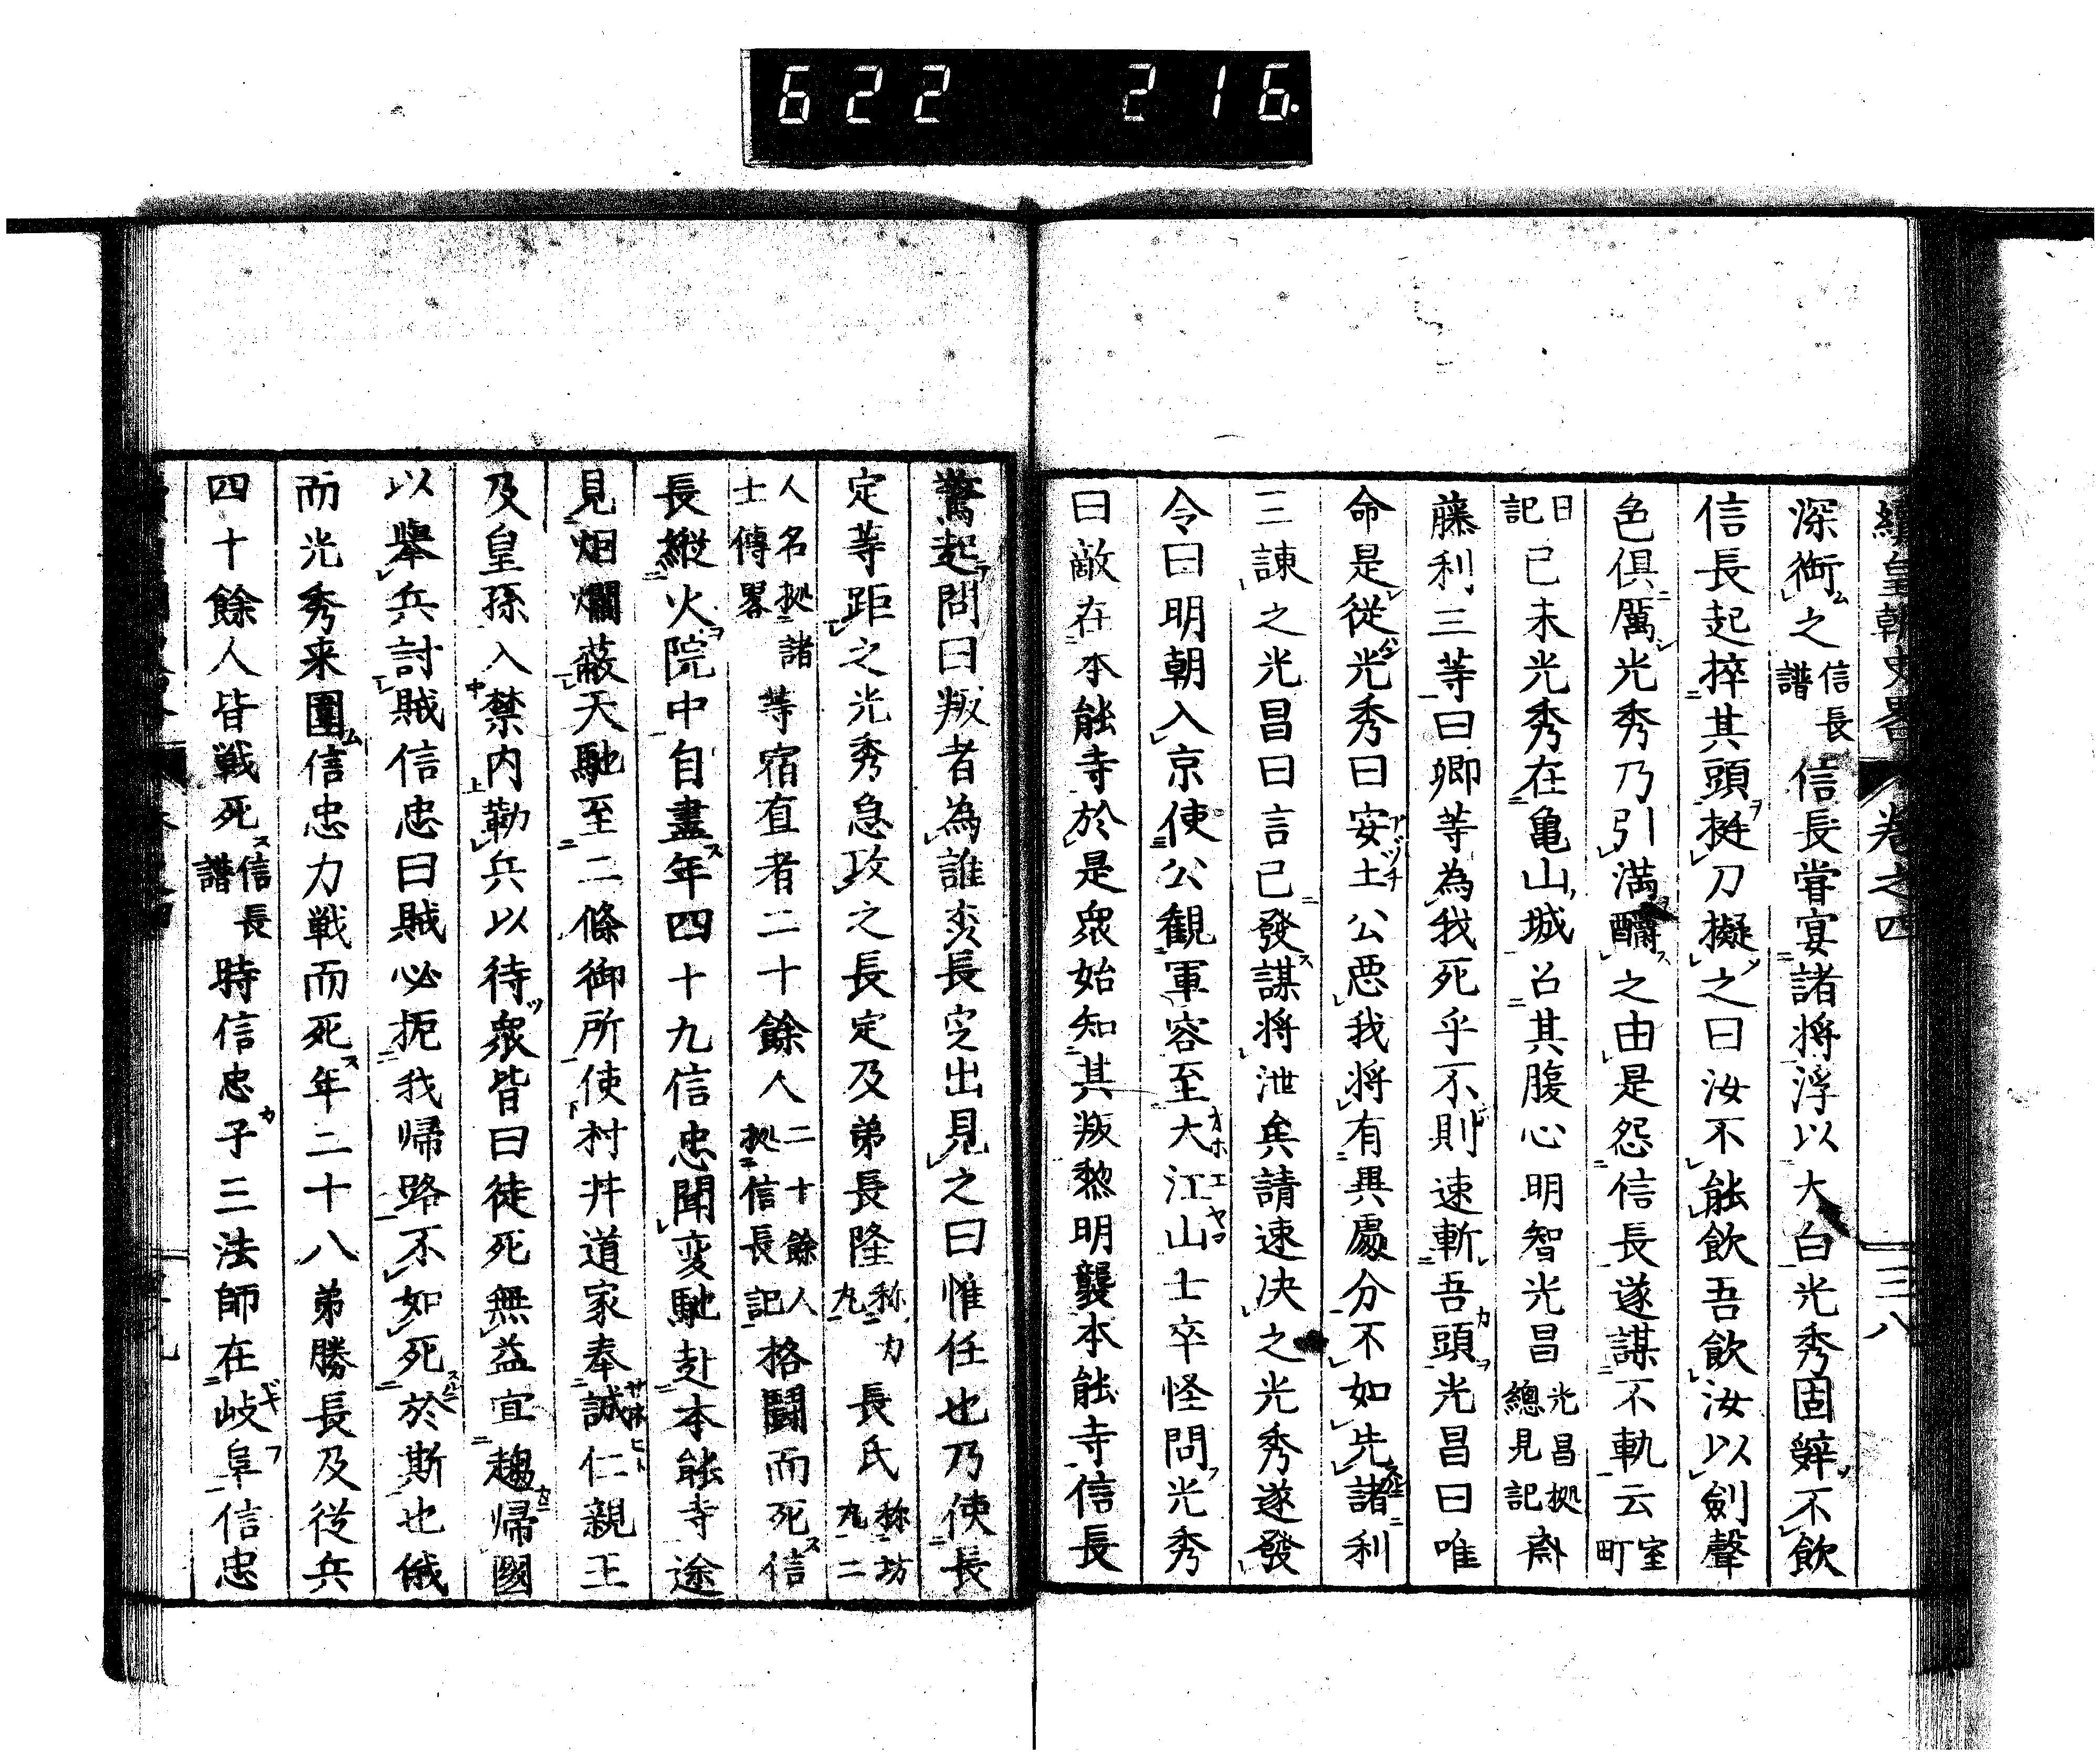 622 216.
續皇朝史畧 卷之四 三八
深銜之信長譜信長嘗宴諸將浮以大白光秀固辭不飲
信長起捽其頭挺刀擬之曰汝不能飲吾飲汝以劍聲
色俱厲光秀乃引滿釂之由是怨信長遂謀不軌云室町
日記已未光秀在亀山城召其腹心明智光昌光昌拠總見記斎
藤利三等曰卿等為我死乎不則速斬吾頭光昌曰唯
命是從光秀曰安土公惡我将有異處分不如先諸利
三諌之光昌曰言已發謀将泄矣請速决之光秀遂發
令曰明朝入京使公観軍容至大江山士卒怪問光秀
曰敵在本能寺於是衆始知其叛黎明襲本能寺信長
驚起問曰叛者為誰森長定出見之曰惟任也乃使長
定等距之光秀急攻之長定及弟長隆称力丸長氏称坊丸二
人名拠諸士傳畧等宿直者二十餘人二十餘人拠信長記格鬪而死信
長縱火院中自盡年四十九信忠聞変馳赴本能寺途
見烟爓蔽天馳至二條御所使村井道家奉誠仁親王
及皇孫入禁内勒兵以待衆皆曰徒死無益宜趨歸國
以擧兵討賊信忠曰賊必扼我帰路不如死於斯也俄
而光秀来圍信忠力戦而死年二十八弟勝長及従兵
四十餘人皆戦死信長譜時信忠子三法師在岐阜信忠